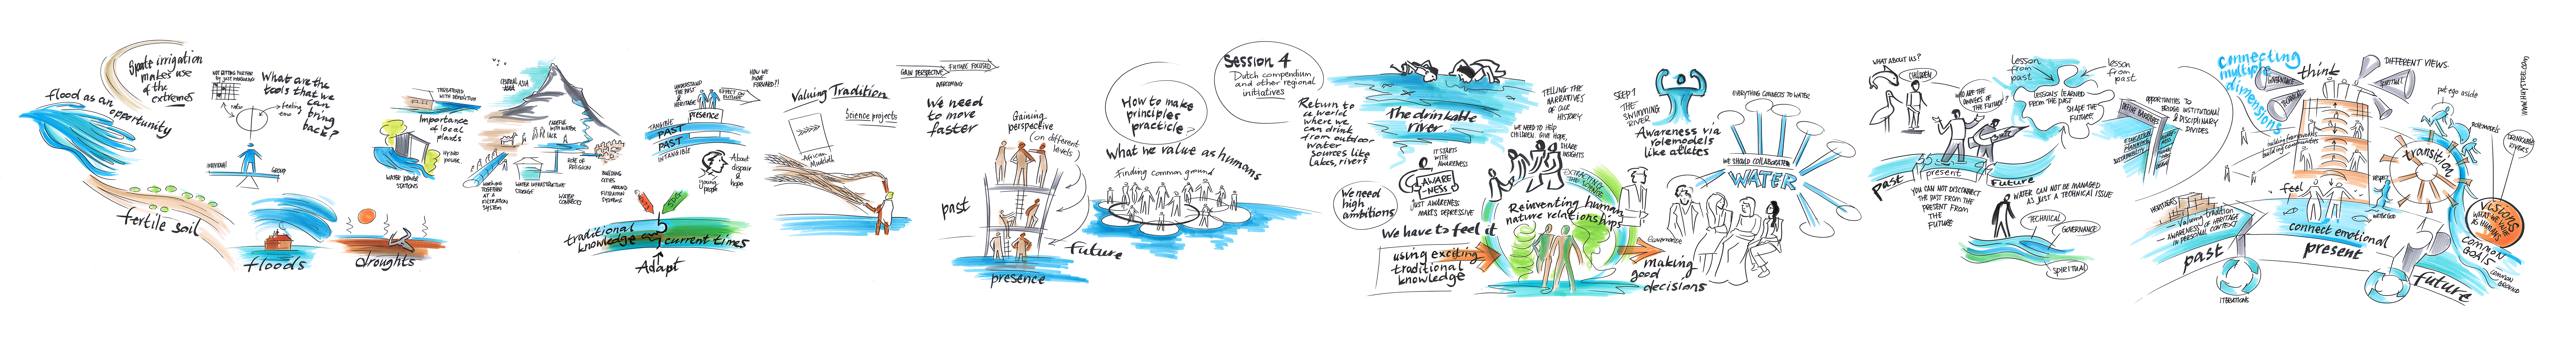 Spate irrigation
makes use
of the
extremes
flood as an
opportunity
fertile soil
What are the
tools that we
can
bring
back?
feeling
INDIVIDUAL
GROUP
floods
droughts
THREATENED
WITH DEMOLITION
Importance
of local
plants
HYDRO
POWER
WATER POWER
STATIONS
CENTRAL
ASIA
ROLE OF
RELIGION
WORKING
TOGETHER
AT A
FILTRATION
SYSTEM
WATER INFRASTRUCTURE
STORAGE
WATER
CONNECTS
BUILDING
CITIES
AROUND
FILTRATION
SYSTEMS
UNDERSTAND
THE PAST
&
HERITAGE
presence
EFFECT ON
FUTURE
HOW WE
MOVE
FORWARD?!
TANGIBLE
PAST
PAST
INTANGIBLE
young
people
About
dispair
&
hope
SDG
traditional
knowledge
current times
Adapt
Valuing Tradition
Science projects
African
GAIN PERSPECTIVE
FUTURE FOCUSED
We need
to move
faster
Gaining
perspective
(on different
levels)
past
future
presence
How to make
principles
practicle?
What we value as humans
Finding common ground
Session 4
Dutch compendium
and other regional
initiatives
Return to
a world
where we
can drink
from outdoor
water
sources like
lakes, rivers
The drinkable
river
IT STARTS
WITH
AWARENESS
AWARE
NESS
JUST AWARENESS
MAKES DEPRESSIVE
We need
high
ambitions
We have to feel it
using exciting
traditional
knowledge
TELLING THE
NARRATIVES
OF OUR
HISTORY
WE NEED TO HELP
CHILDREN. GIVE HOPE,
SHARE
INSIGHTS
Reinventing human
nature relationships
STEP 1
THE
SWIMMING
RIVER
Awareness via
rolemodels
like atletes
Governance
making
good
decisions
EVERYTHING CONNECTS TO WATER
WE SHOULD COLLABORATE
WATER
WHAT ABOUT US?
CHILDREN
WHO ARE THE
OWNERS OF
THE FUTURE?
past
present
future
YOU CAN NOT DISCONNECT
THE PAST FROM THE
PRESENT FROM
THE
FUTURE
lesson
from
past
lesson
from
past
LESSONS LEARNED
FROM THE PAST
SHAPE THE
FUTURE
WATER CAN NOT BE MANAGED
AS JUST A TECHNICAL ISSUE
TECHNICAL
GOVERNANCE
SPIRITUAL
OPPORTUNITIES TO
BRIDGE INSTITUTIONAL
& DISCIPLINARY
DIVIDES
DEFINE NARRATIVES
HERITAGES
Valuing tradition
AWARENESS OF HERITAGE
IN PERSONAL CONTEXT
past
ITERATIONS
connecting
multiple
dimensions
GOVERNANCE
TECHNICAL
think
SPIRITUAL
DIFFERENT VIEWS
building frameworks
building communities
feel
connect emotional
present
put ego aside
transition
RESPECT
WATER GOD
ROLEMODELS
DRINKABLE
RIVERS
VISION
WHAT WE
VALUE
AS HUMANS
COMMON
GOALS
COMMON
GROUND
future